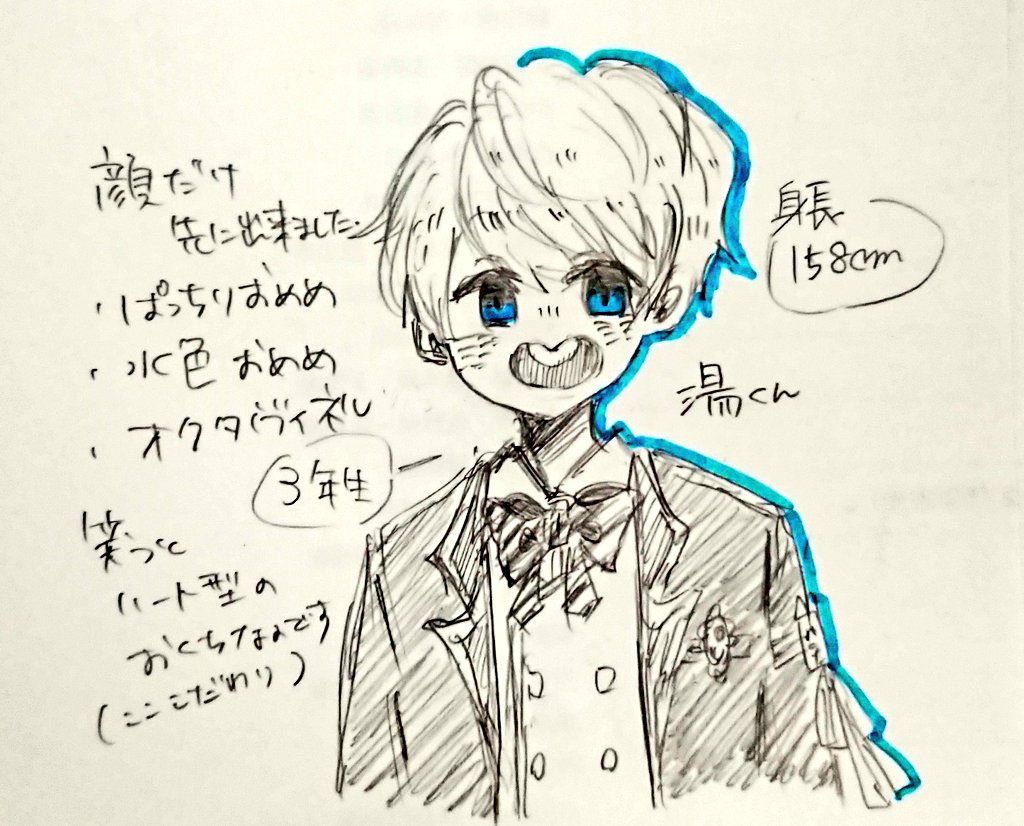 顔だけ
先に出来ました。
・ぱっちりおめめ
・水色おめめ
・オクタヴィネル
3年生
笑うと
ハート型の
おくちなのです
(こここだわり)
身長
158cm
湯くん